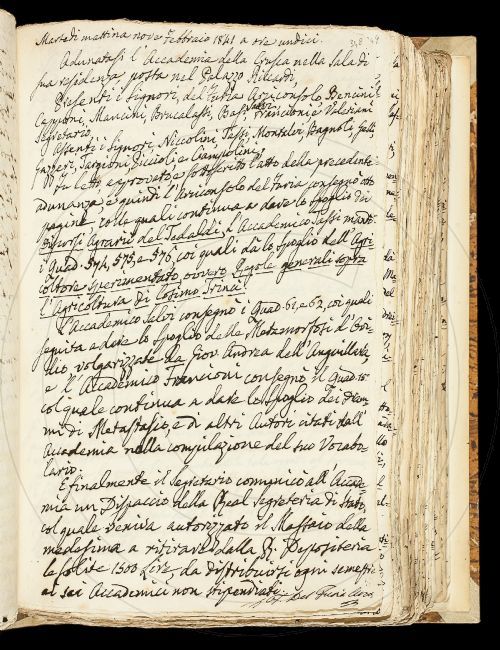 Martedì mattina nove Febbraio 1841 a ore undici.
Adunatasi l'Accademia della Crusca nella Sala di
sua residenza, posta nel Palazzo Riccardi,
Presenti i Signori, del Furia Arciconsolo, Bencini,
Capponi, Mancini, Brucalassi, Salvi, Francioni e Valeriani
Segretario.
Assenti i Signori, Niccolini, Tassi, Montalvi, Bagnoli,
Targioni, e Ciampolini;
Fu letto approvato e sottoscritto l'atto della precedente
adunanza, e quindi l'Arciconsolo del Furia consegnò otto
pagine colle quali continua a dare lo spoglio dei
Discorsi Agrarii del Tedaldi, l'Accademico Tassi mandò
i Quad. 574, 575, e 576, coi quali dà lo spoglio dell'Agri-
coltore sperimentato, ovvero Regole generali sopra
l'Agricoltura di Cosimo Trinci.
L'Accademico Salvi consegnò i Quad. 61, e 62, coi quali
seguita a dare lo spoglio delle Metamorfosi d'Ovi-
dio volgarizzate da Giov. Andrea dell'Anguillara,
e l'Accademico Francioni consegnò il Quad. 10
col quale continua a dare lo spoglio dei Dram-
mi di Metastasio, e di altri Autori citati dall'
Accademia nella compilazione del suo Vocabo-
lario.
E finalmente il Segretario comunicò all'Accade-
mia un Dispaccio della Real Segreteria di Stato,
col quale veniva autorizzato il Massaio della
medesima a ritirare dalla R. Depositeria
le solite 1500 Lire, da distribuirsi ogni semestre
ai sei Accademici non stipendiati.
Del Furia Arco.